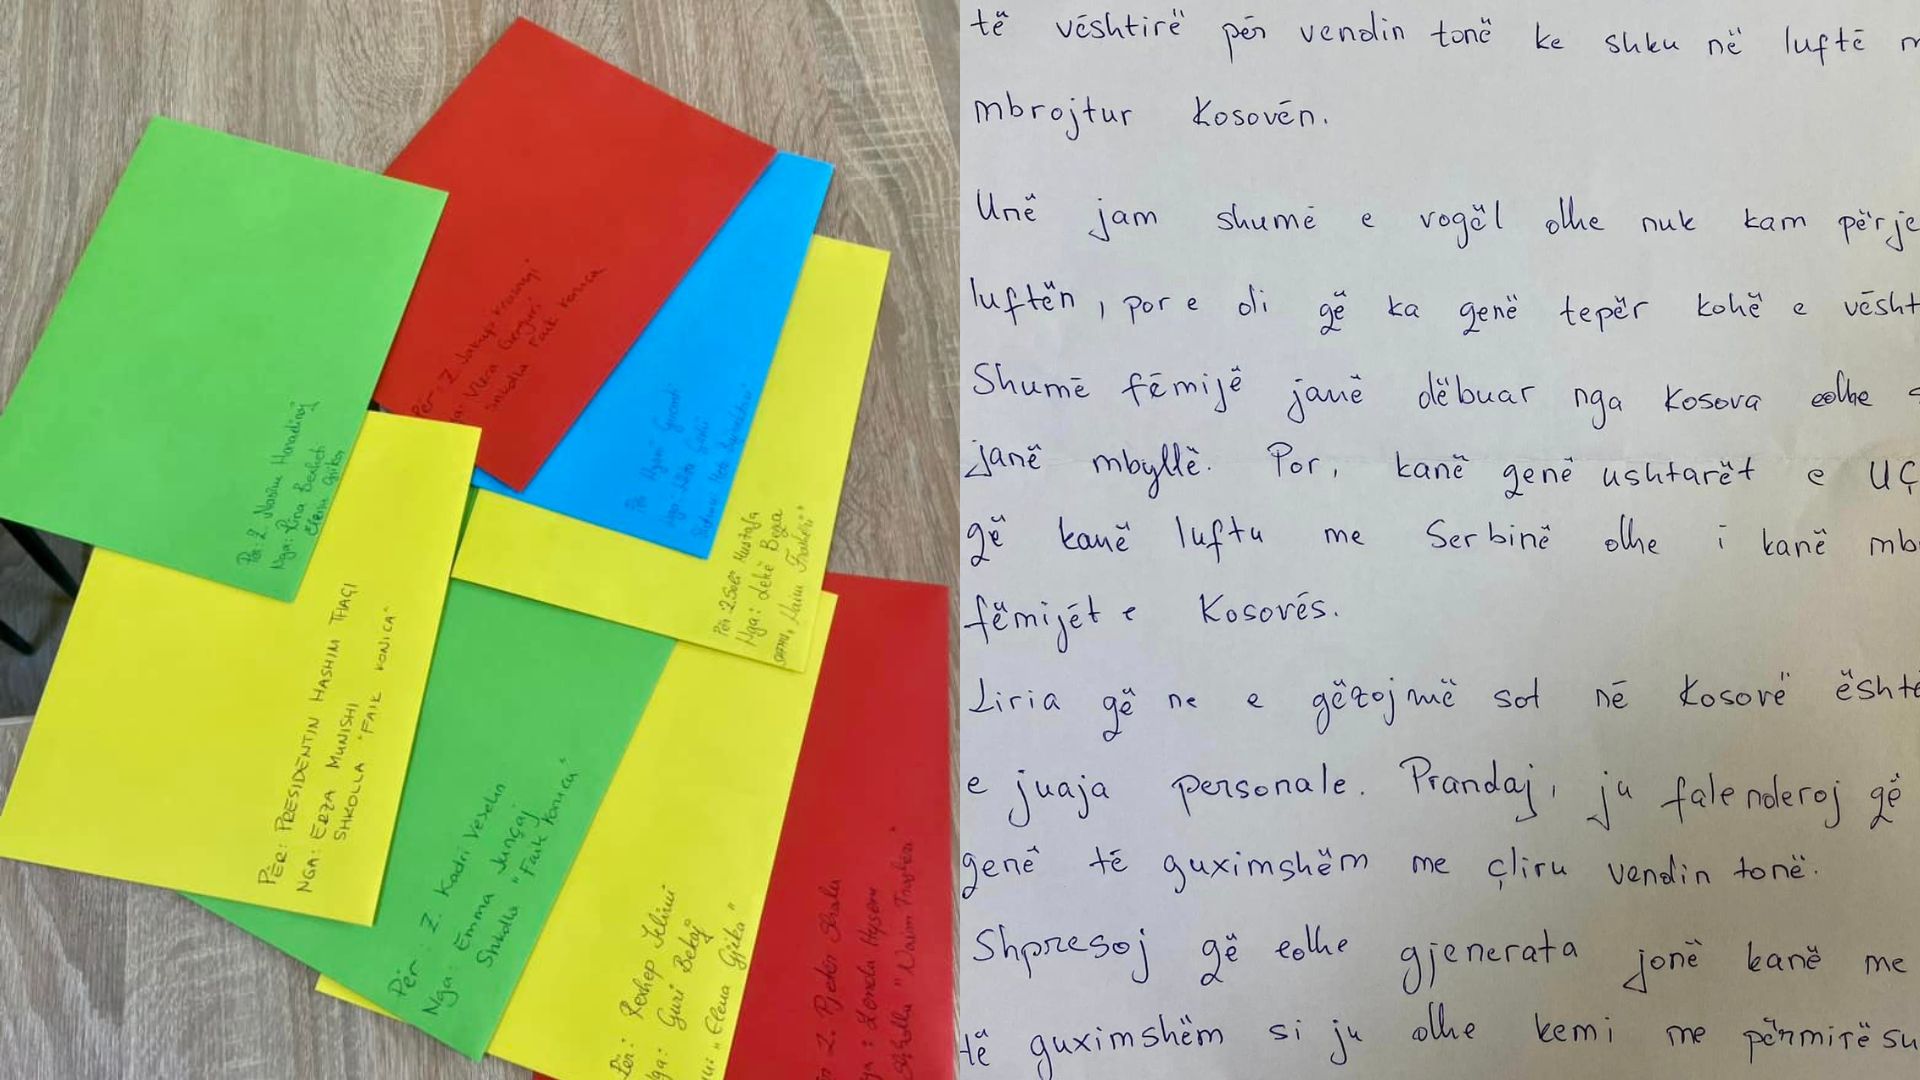 Për: Z. Nasim Haradinaj
Nga: Rina Berisha
Elena Gjika
Për: Z. Jakup Krasniqi
Nga: Vlera Gërguri
Shkolla Faik Konica
Për Hysni Gucati
Nga:
Për: Z Sali Mustafa
Nga: Lekë Beqa
Naim Frashëri"
PËR: PRESIDENTIN HASHIM THAÇI
NGA: ERZA MUNISHI
SHKOLLA "FAIK KONICA"
Për: Z. Kadri Veselin
Nga: Emma Junçaj
Shkolla "Faik Konica"
Për: Rexhep Selimi
Nga: Guri Bekaj
"Elena Gjika"
Z. Pjetër Shala
Lenda Hyseni
Shkolla "Naim Frashëri"
të vështirë për vendin tonë ke shku në luftë
mbrojtur Kosovën.
Unë jam shumë e vogël dhe nuk kam përje
luftën, por e di që ka qenë tepër kohë e vësht
Shumë fëmijë janë dëbuar nga Kosova edhe
janë mbyllë. Por, kanë qenë ushtarët e UÇ
që kanë luftu me Serbinë dhe i kanë mb
fëmijët e Kosovës.
Liria që ne e gëzojmë sot në Kosovë është
e juaja personale. Prandaj, ju falenderoj që
qenë të guximshëm me çliru vendin tonë.
Shpresoj që edhe gjenerata jonë kanë me
të guximshëm si ju dhe kemi me përmirësu